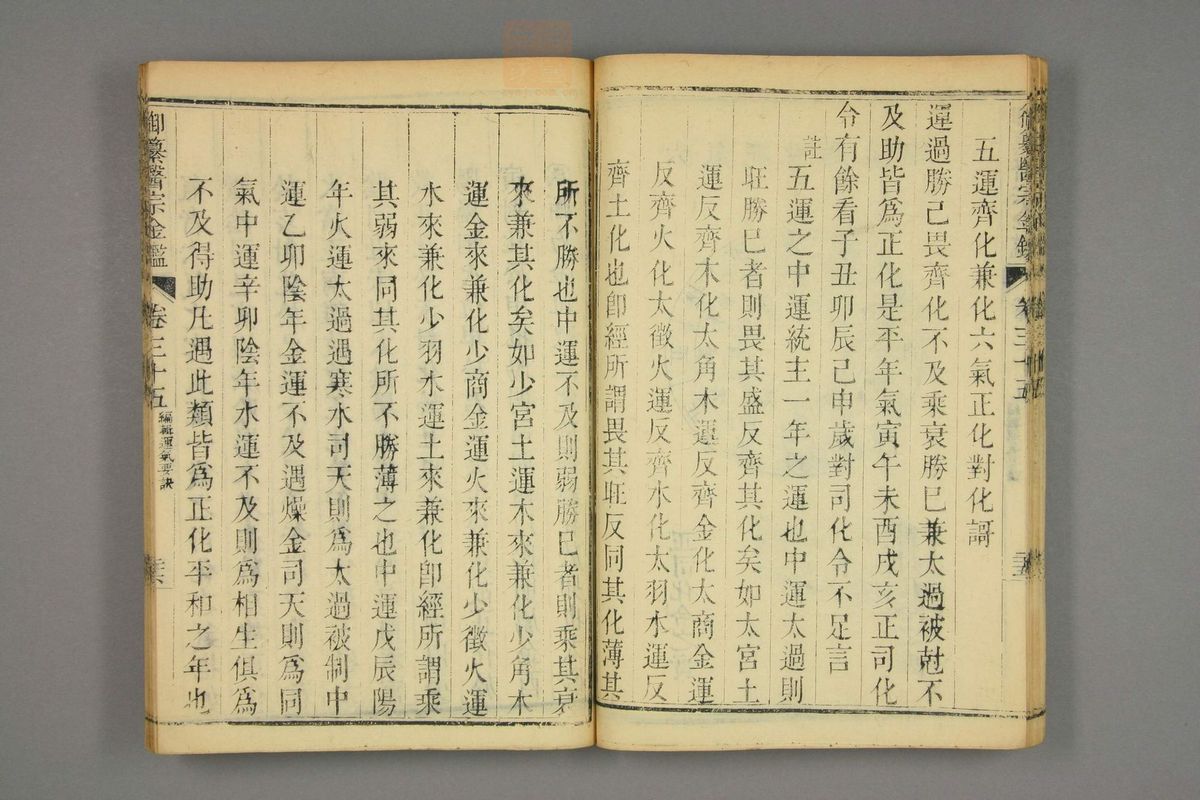 五運齊化兼化六氣正化對化謌
運過勝己畏齊化不及乘衰勝已兼太過被尅不
及助皆爲正化是平年氣寅午未酉戌亥正司化
令有餘看子丑卯辰已申歲對司化令不足言
註
五運之中運統主一年之運也中運太過則
旺勝已者則畏其盛反齊其化矣如太宮土
運反齊木化太角木運反齊金化太商金運
反齊火化太徵火運反齊水化太羽水運反
齊土化也卽經所謂畏其旺反同其化薄其
所不勝也中運不及則弱勝已者則乘其衰
來兼其化矣如少宮土運木來兼化少角木
運金來兼化少商金運火來兼化少徵火運
水來兼化少羽水運土來兼化卽經所謂乘
其弱來同其化所不勝薄之也中運戊辰陽
年火運太過遇寒水司天則爲太過被制中
運乙卯陰年金運不及遇燥金司天則爲同
氣中運辛卯陰年水運不及則爲相生俱爲
不及得助凡遇此類皆爲正化平和之年也
御纂醫宗金鑑
卷三十五
編輯運氣要訣